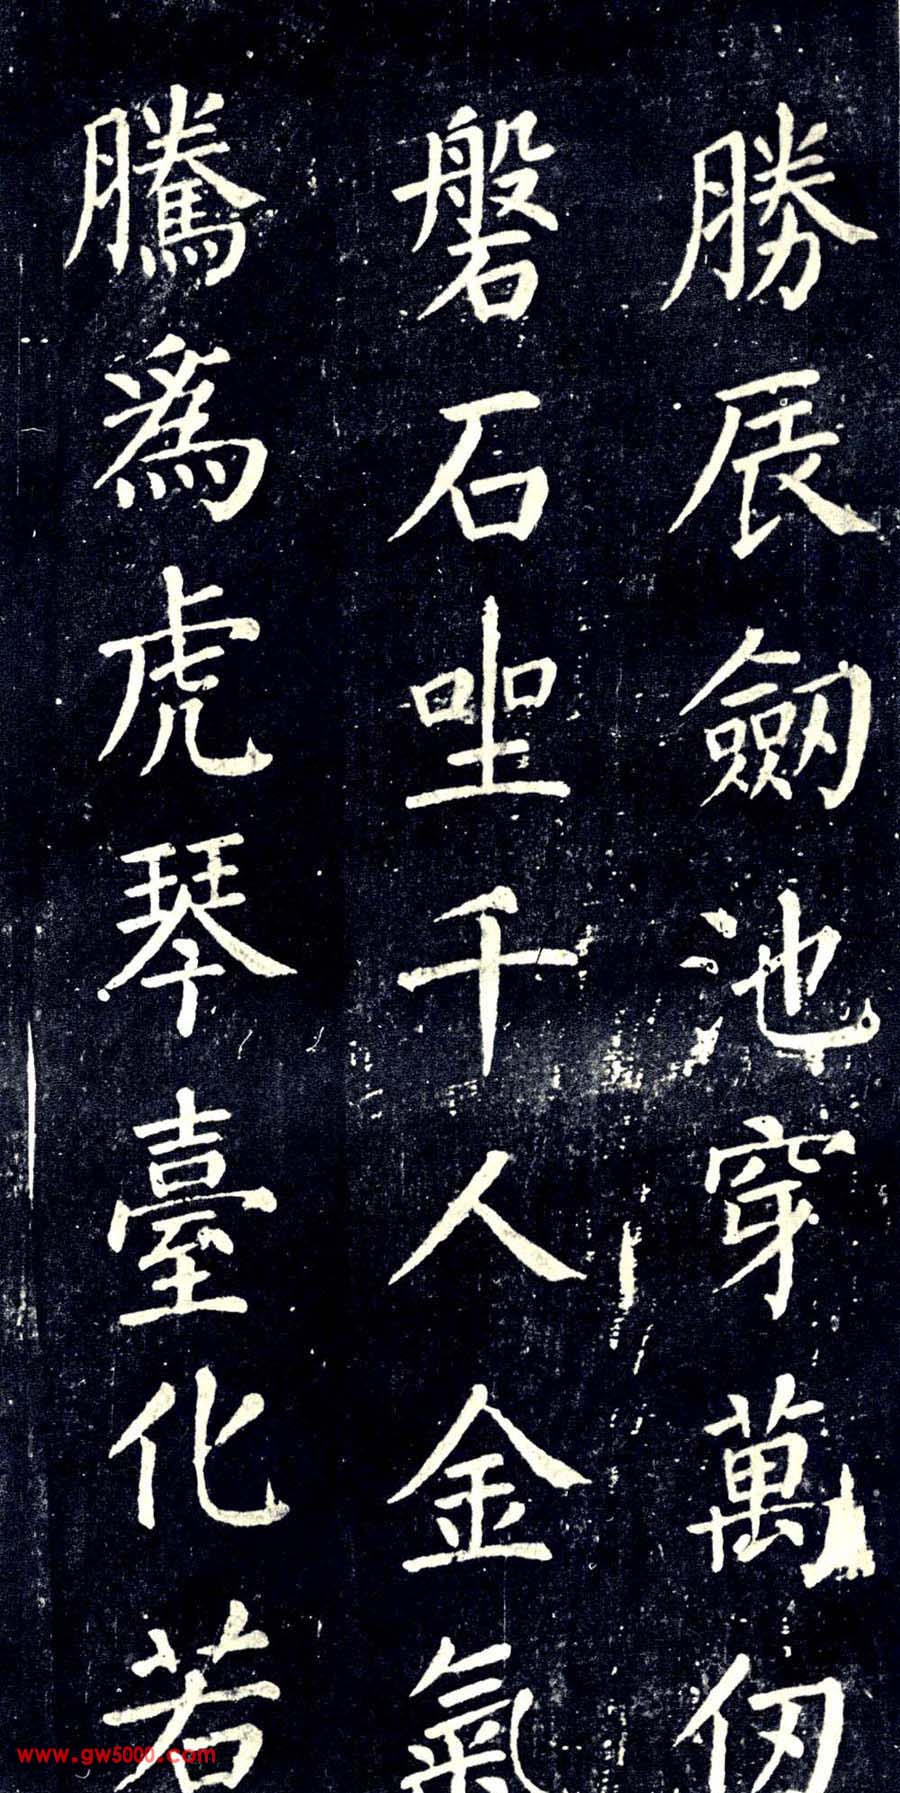 勝辰劒池穿萬仞
磐石坐千人金氣
騰為虎琴臺化若
www.gw5000.com